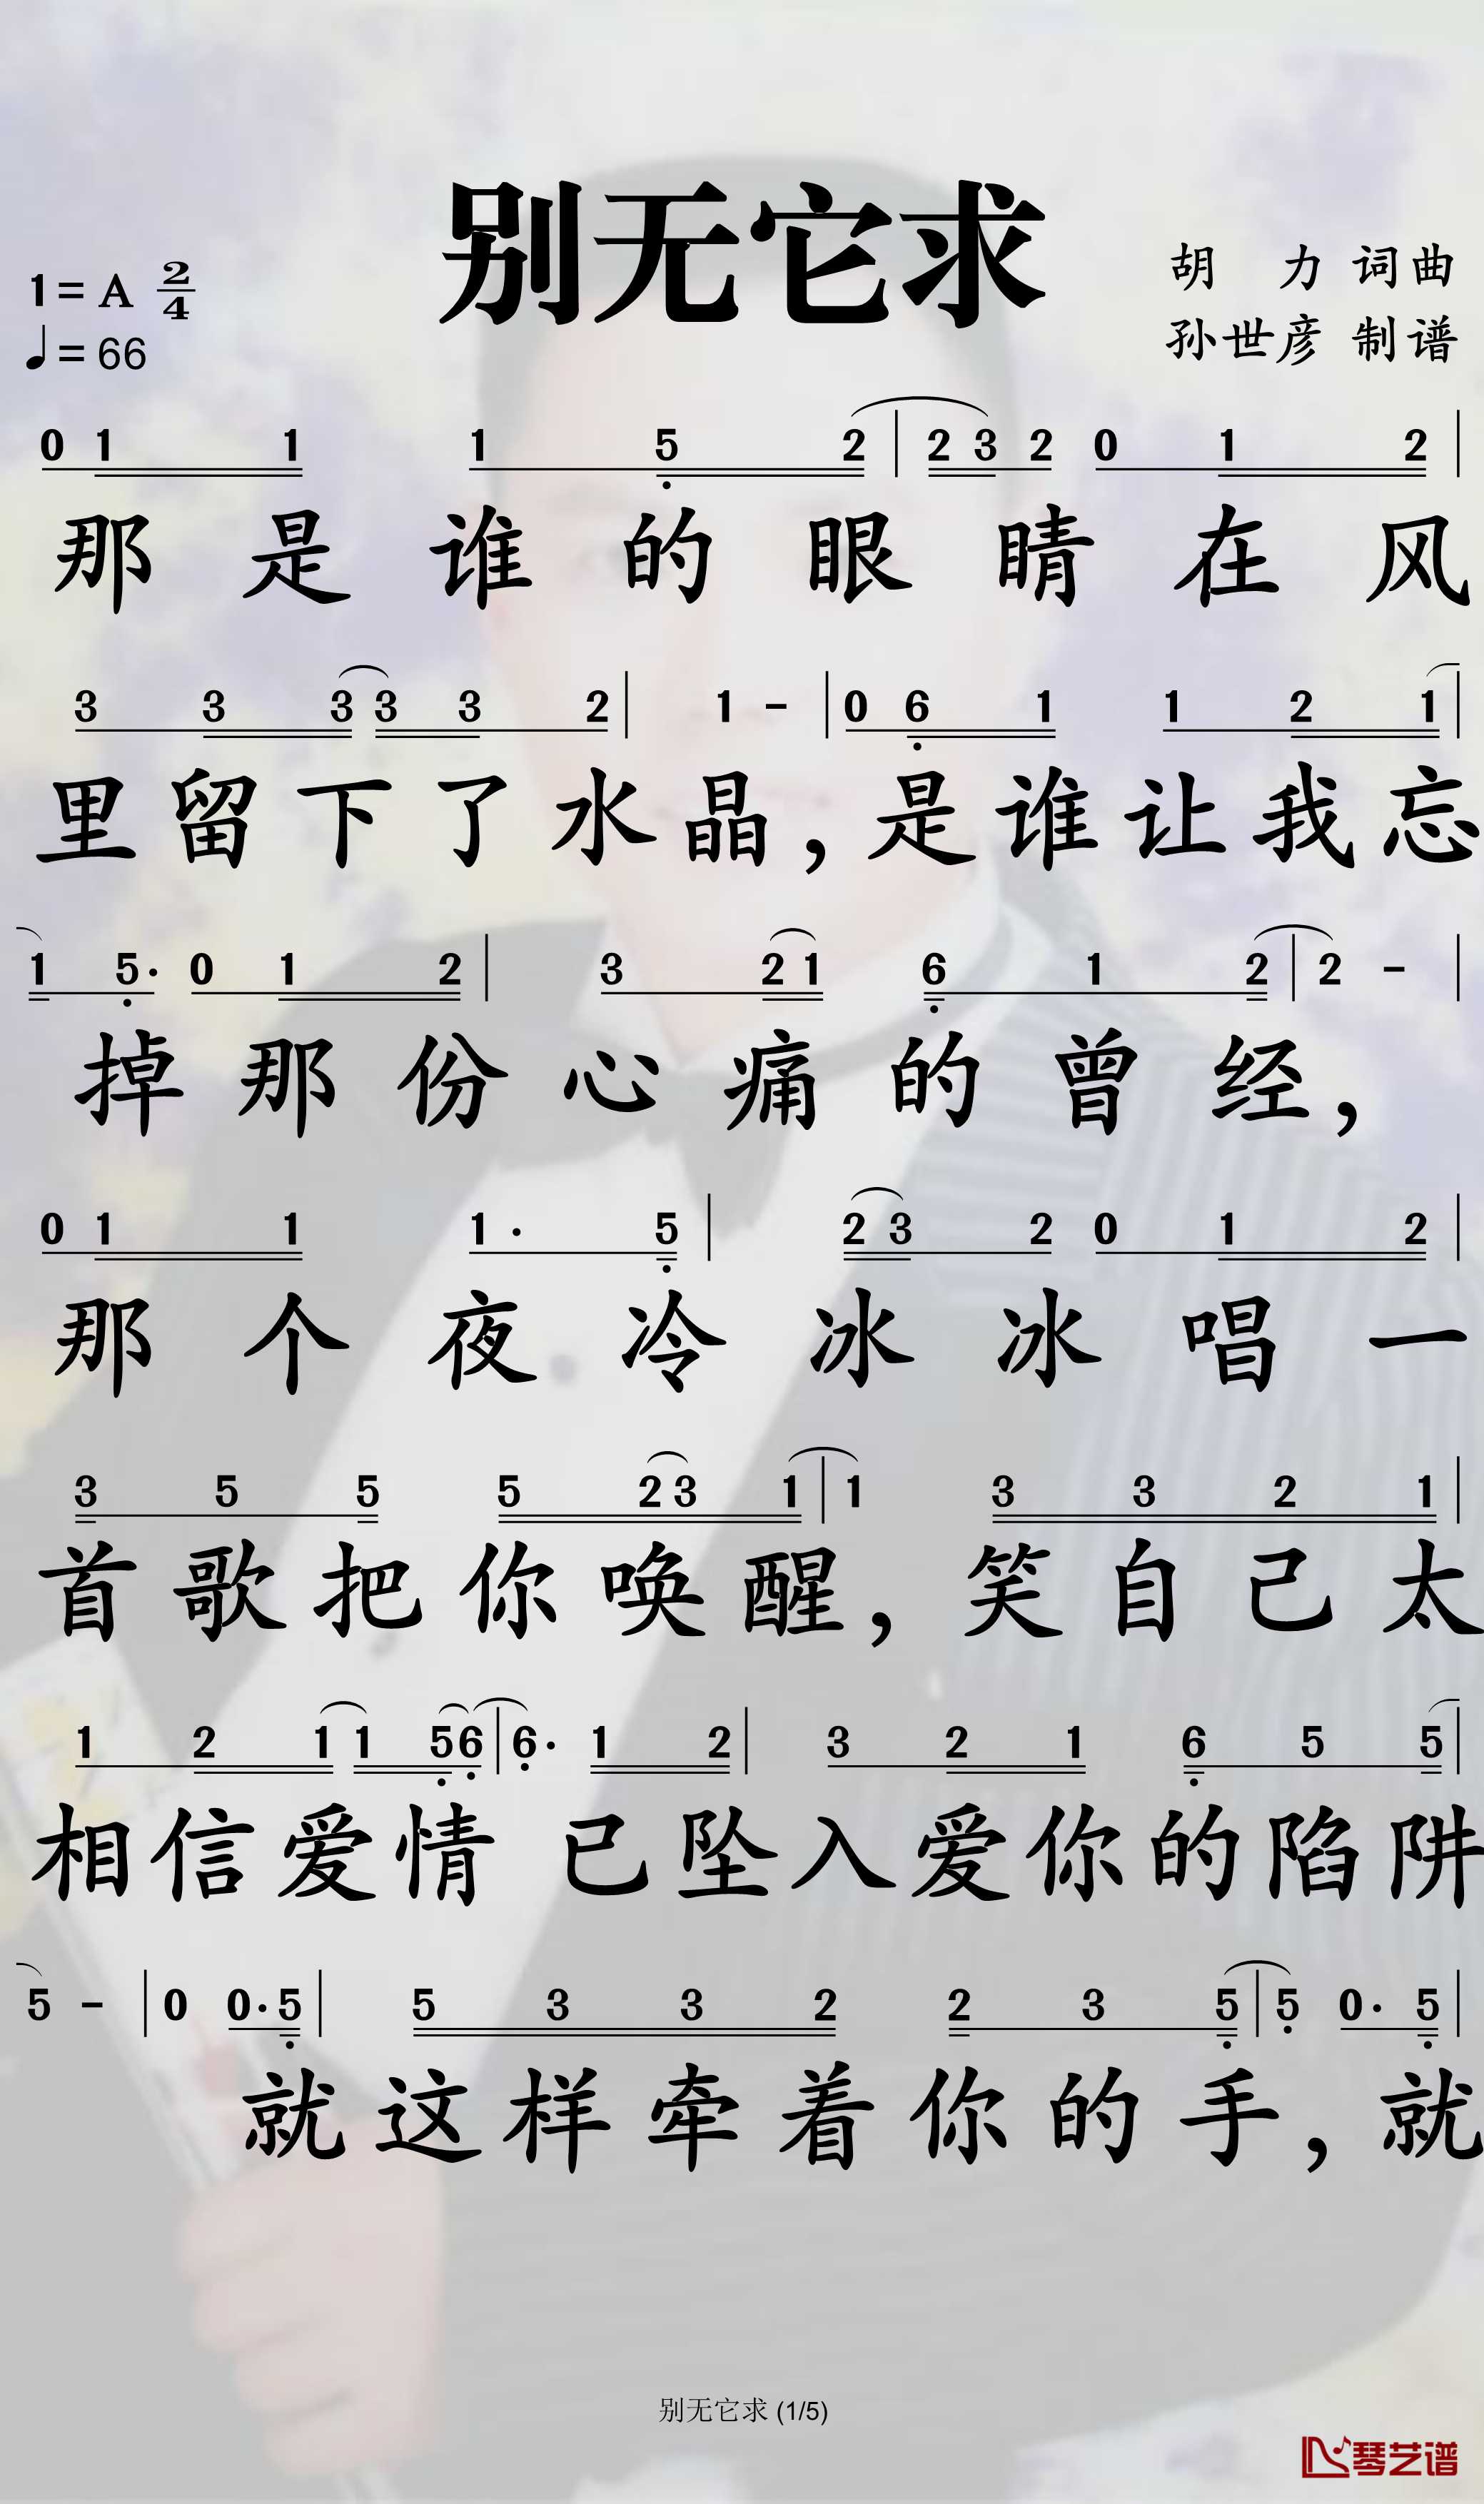 别无它求
1=A 2/4
♩=66
胡 力 词曲
孙世彦 制谱
0 1 1 1 5 2 | 2 3 2 0 1 2 |
那是谁的眼睛在风
3 3 3 3 3 2 | 1 - | 0 6 1 1 2 1 |
里留下了水晶,是谁让我忘
1 5· 0 1 2 | 3 2 1 6 1 2 | 2 - |
掉那份心痛的曾经,
0 1 1 1· 5 | 2 3 2 0 1 2 |
那个夜冷冰冰唱一
3 5 5 5 2 3 1 | 1 3 3 2 1 |
首歌把你唤醒,笑自己太
1 2 1 1 5 6 | 6· 1 2 | 3 2 1 6 5 5 |
相信爱情 已坠入爱你的陷阱
5 - | 0 0· 5 | 5 3 3 2 2 3 5 | 5 0· 5 |
就这样牵着你的手,就
别无它求 (1/5)
琴艺谱